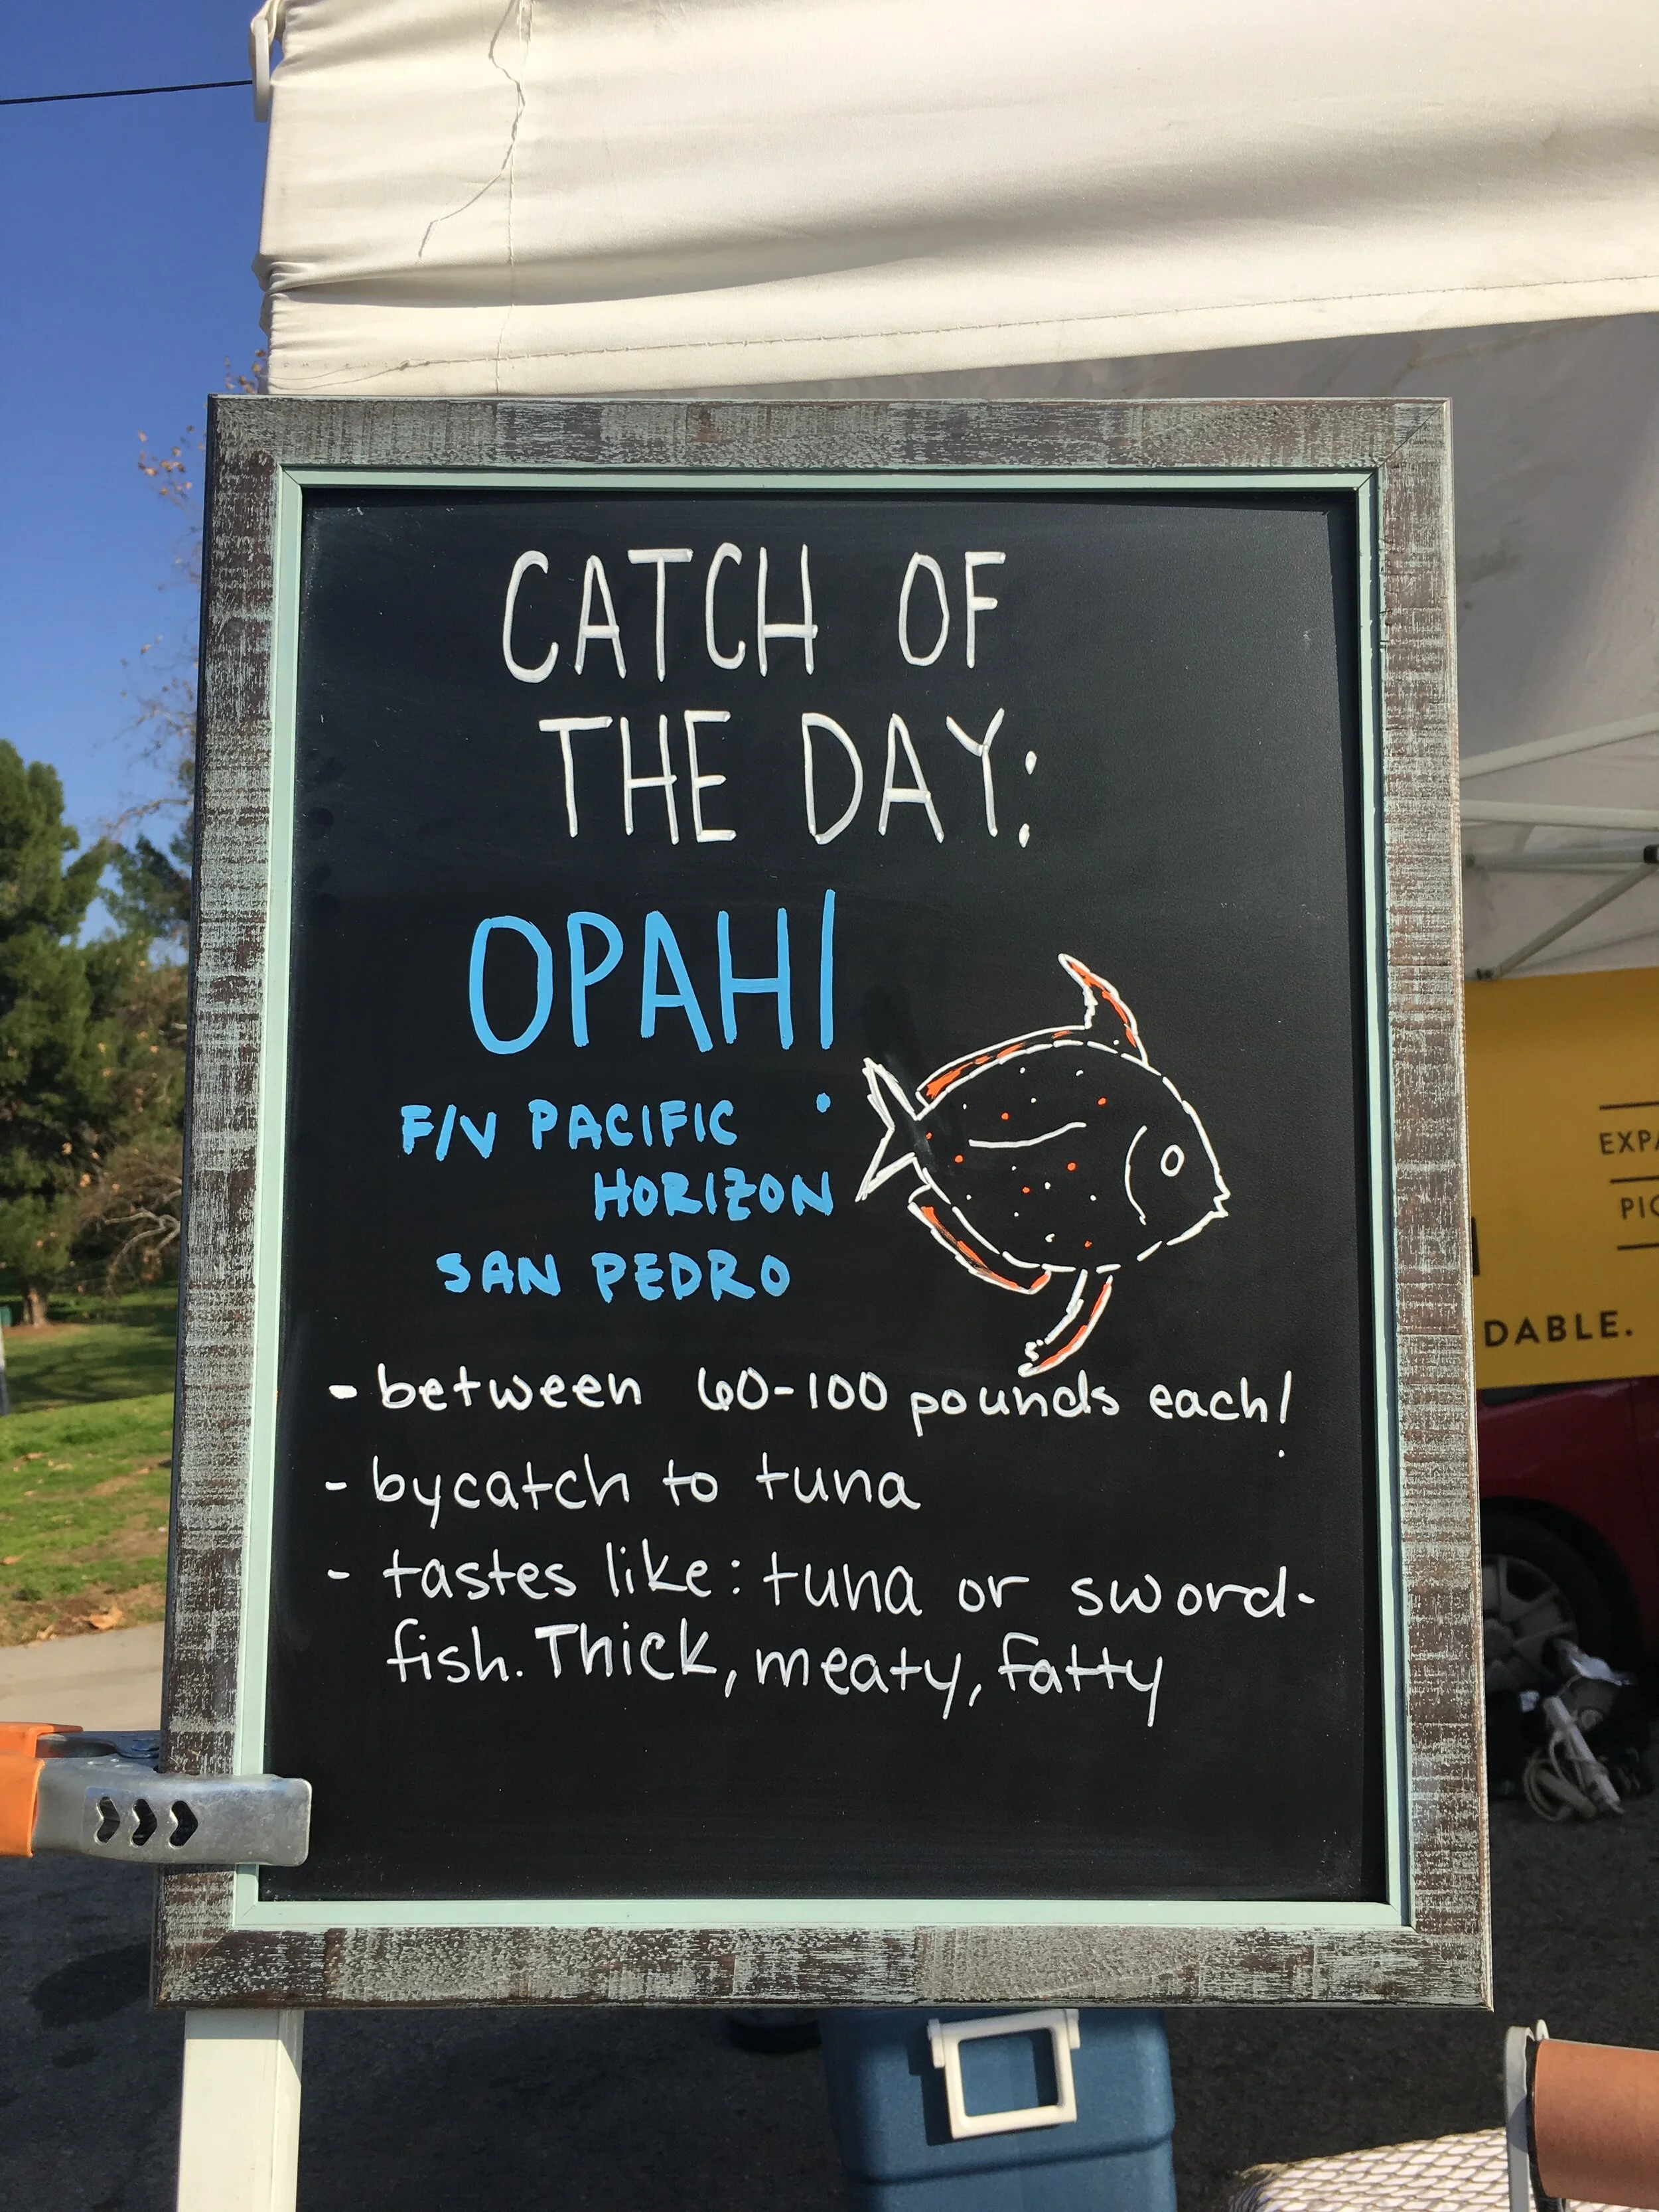 CATCH OF
THE DAY:
OPAH!
F/V PACIFIC
HORIZON
SAN PEDRO
- between 60-100 pounds each!
- bycatch to tuna
- tastes like: tuna or sword-
fish. Thick, meaty, fatty
DABLE.